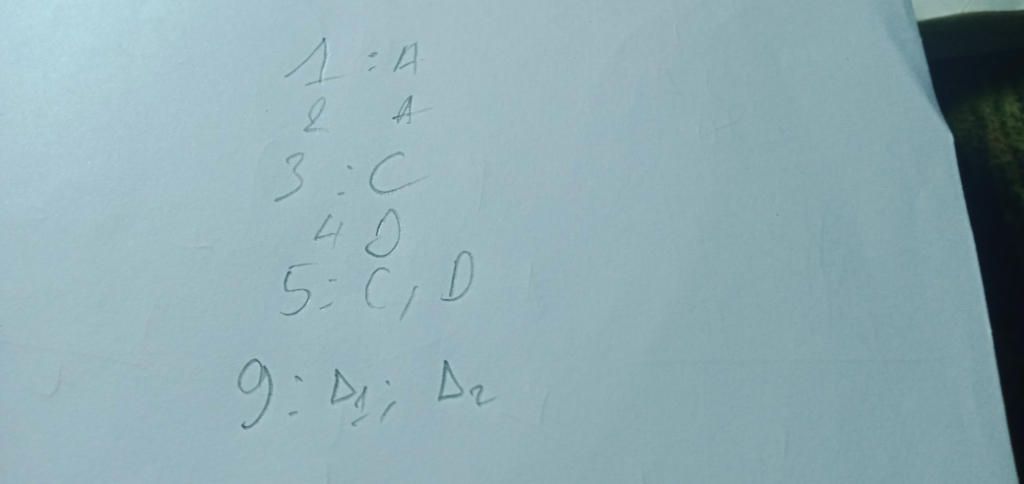 1 : A
2 A
3 : C
4 D
5 : C, D
9 : Δ1; Δ2